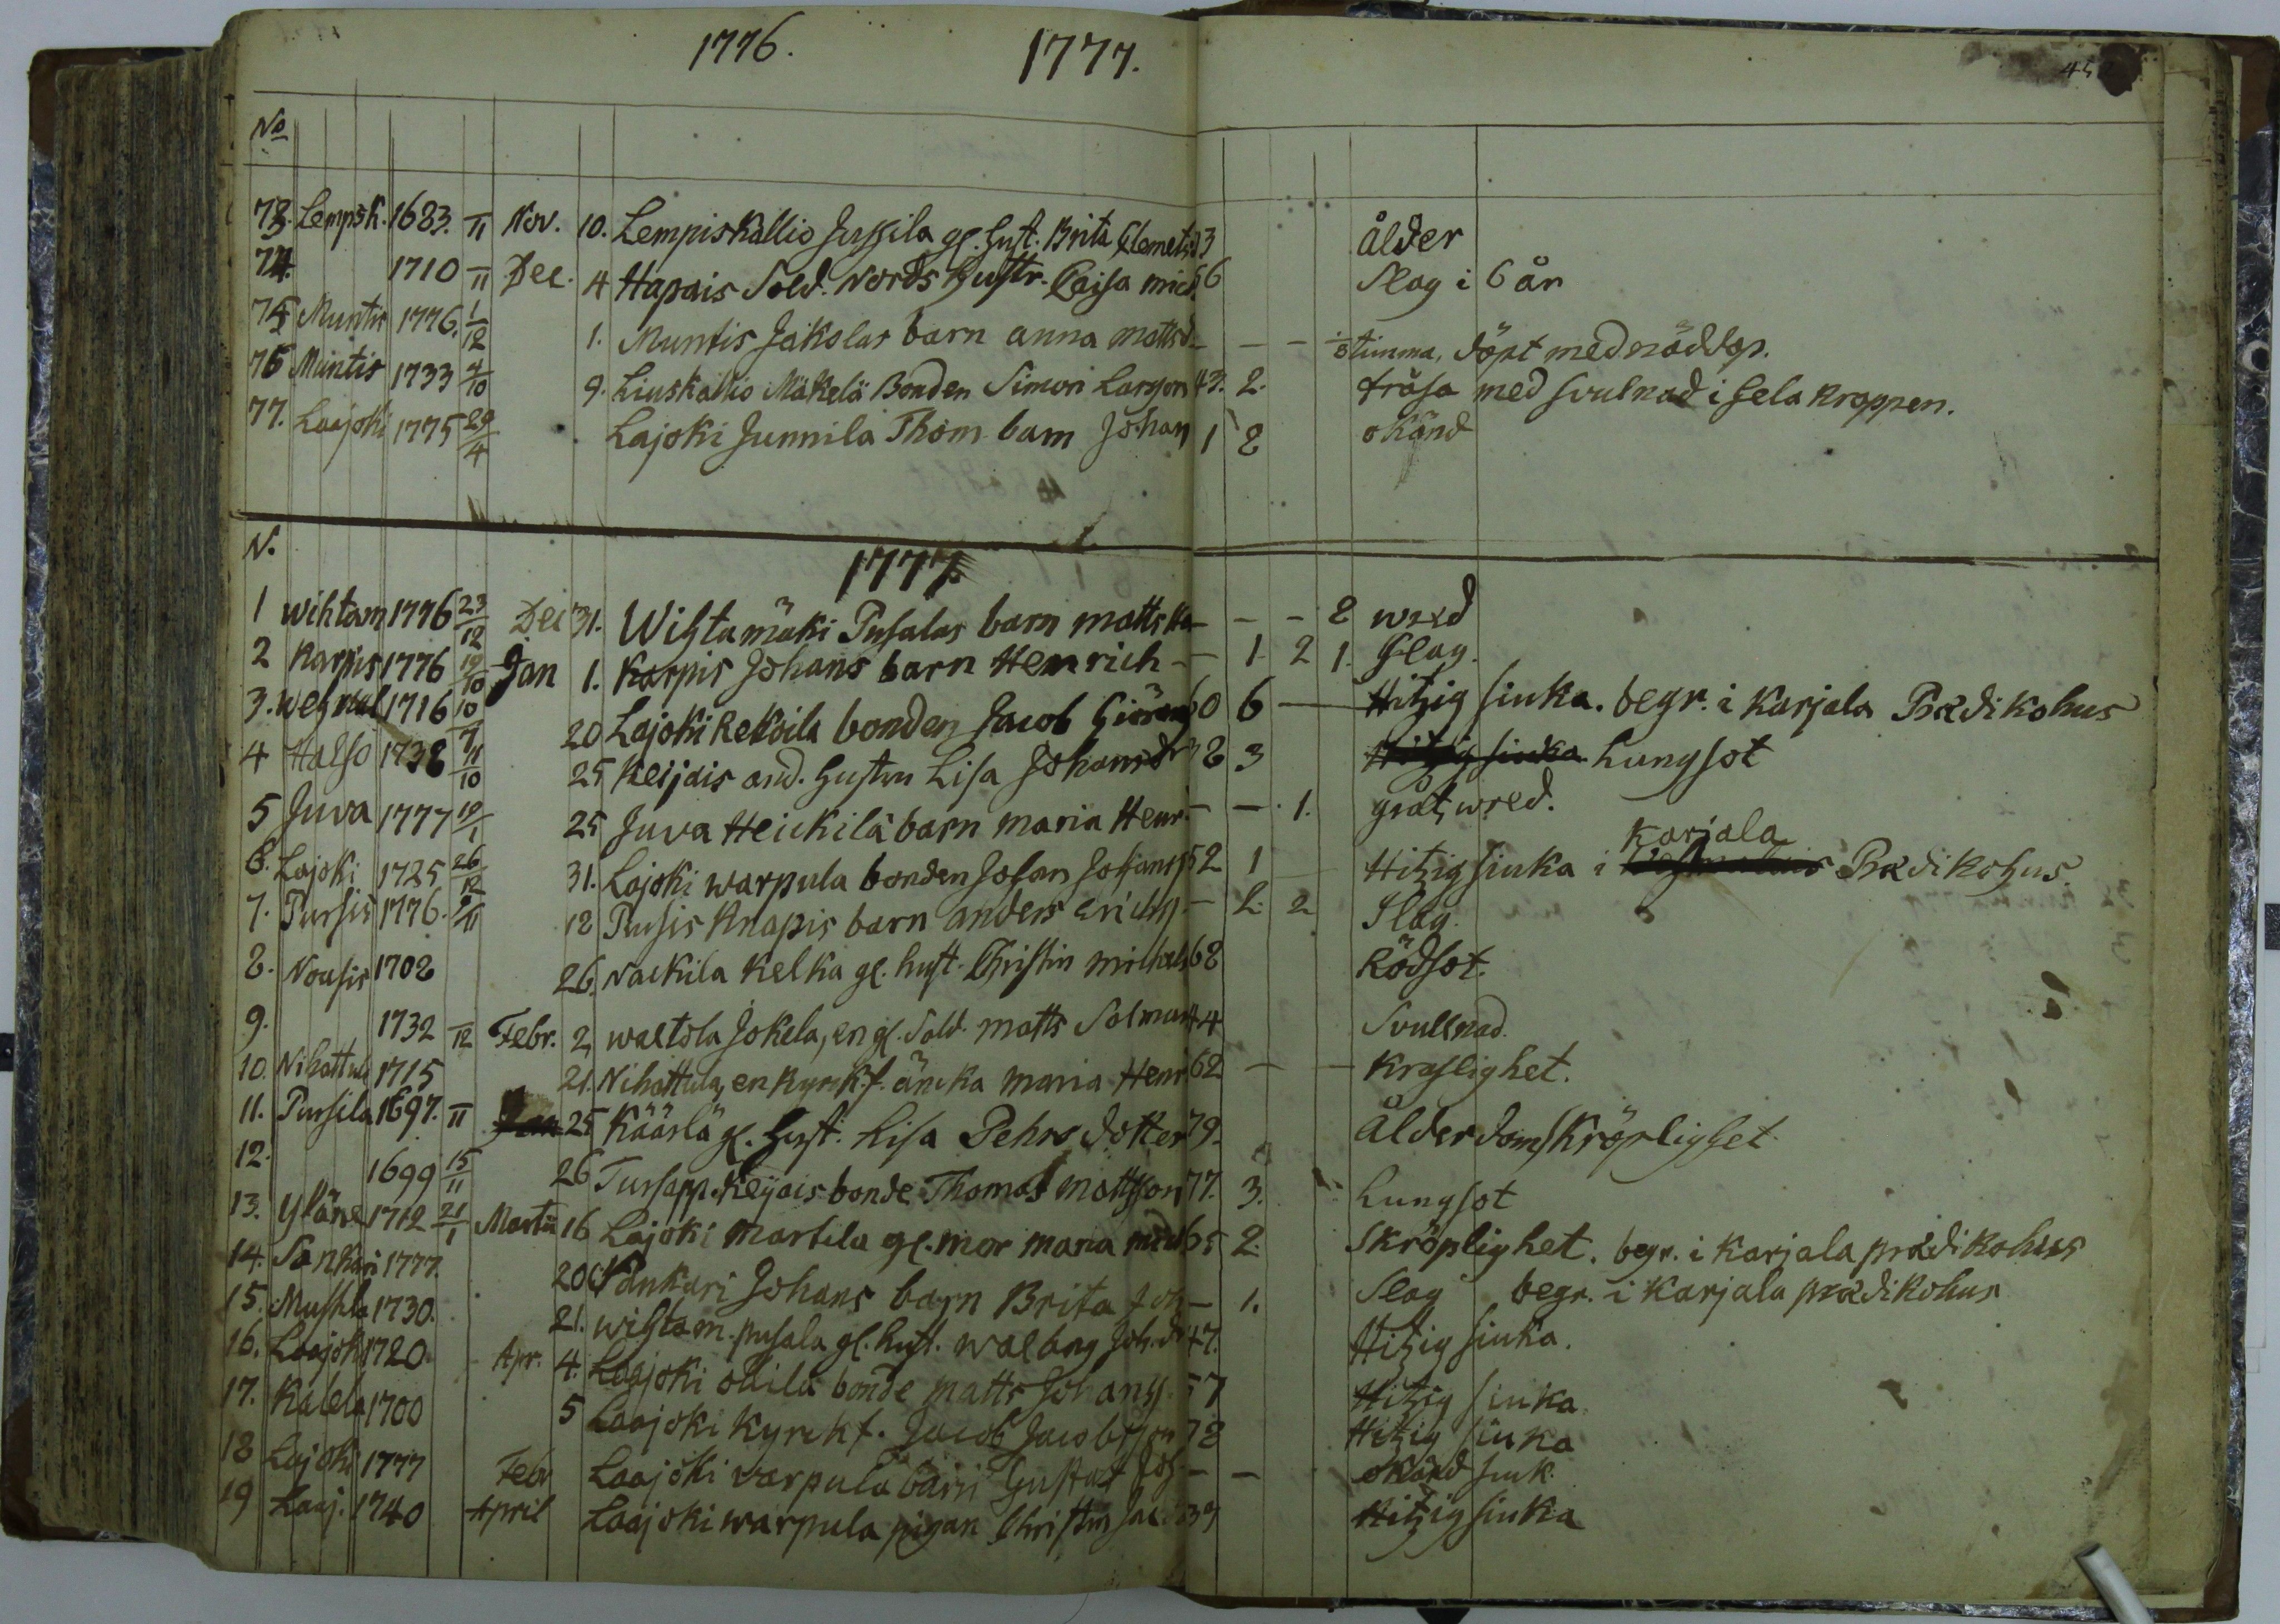 1776. 1777.
No
73. Lempsk. 1683. 11 Nov. 10. Lempiskallio Jussila gl. hust. Brita Clemetsd 3 ålder
74. 1710 11 Dec. 4 Hapais Sold. Nords hustr. Caisa mich. 66 Slag i 6 år
75 Muntis 1776. 1/12 1. Muntis Jakolas barn anna mattsd - - - 1/8 timma, döpt med nöddop.
76 Muntis 1733 4/10 9. Liuskallio Mäkelä Bonden Simon Larsson 43. 2. fråsa med svulnad i hela kroppen.
77. Laajoki 1775 29/4 Lajoki Junnila Thom barn Johan 1 8 okänd
N.
1777
1 Wihtam 1776 23/12 Dec 31. Wihtamäki Pusalas barn matts - - - 8 wred
2 Karpis 1776 19/10 Jan 1. Karpis Johans barn Henrich - 1 2 1. Slag.
3. 1716 10/7 20 Lajoki Rekoila bonden Jacob 60 6 Hitzig siuka. begr. i Karjala Prædikohus
4 Halso 1738 11/10 25 Keijais and. hustru Lisa Johansdr 38 3 Hitzig siuka Lungsot
5 Juva 1777 19/1 25 Juva Heickilä barn maria Henr. - - 1. gråt, wred.
Karjala
6. Lajoki 1725 26/12 31. Lajoki warpula bonden Johan Johans 52 1 Hitzig siuka i Prædikohus.
7. Pursis 1776. /11 12 Pusis Knapis barn anders erichs. - 2. 2 Slag.
8. Nousis 1708 26. Nackila Kelka gl. hust. Christin michels 68 Rödsot.
9. 1732 12 Febr. 2, waltola Jokela, en gl. Sold. matts Salman 44 Svullnad.
10. Nihattula 1715 21. Nihattula, en kyrck.f. äncka maria Henr 62 - - kraslighet.
11. Pursila 1697. 11 Jan 25 Käärlä gl. hust. Lisa Pehrs dotter 79. Ålderdoms skröplighet
12. 1699 15/11 26 Tursapp. Keijais bonde Thomas mattsson 77. 3. Lungsot
13. Yläne 1712 21/1 Martii 16 Lajoki martila gl. mor maria 65 2. Skröplighet. begr. i Karjala prædikohus
14. Sankari 1777. 20 Sankari Johans barn Brita Joh - 1. Slag begr. i Karjala prædikohus
15. Mushla 1730. 21. wihtam. pusala gl. hust. walborg Joh.dr 47. Hitzig siuka.
16. Laajok 1720 Apr. 4. Laajoki ollila bonde matts Johans. 57 Hitzig siuka
17. Kalela 1700 5 Laajoki kyrck f. Jacob Jacobsson 78 Hitzig siuka
18 Lajoki 1777 Febr Laajoki varpula barn Gustaf Joh - - okänd siuk.
19 Laaj. 1740 April Laajoki warpula pigan Christin Jac 39 Hitzig siuka